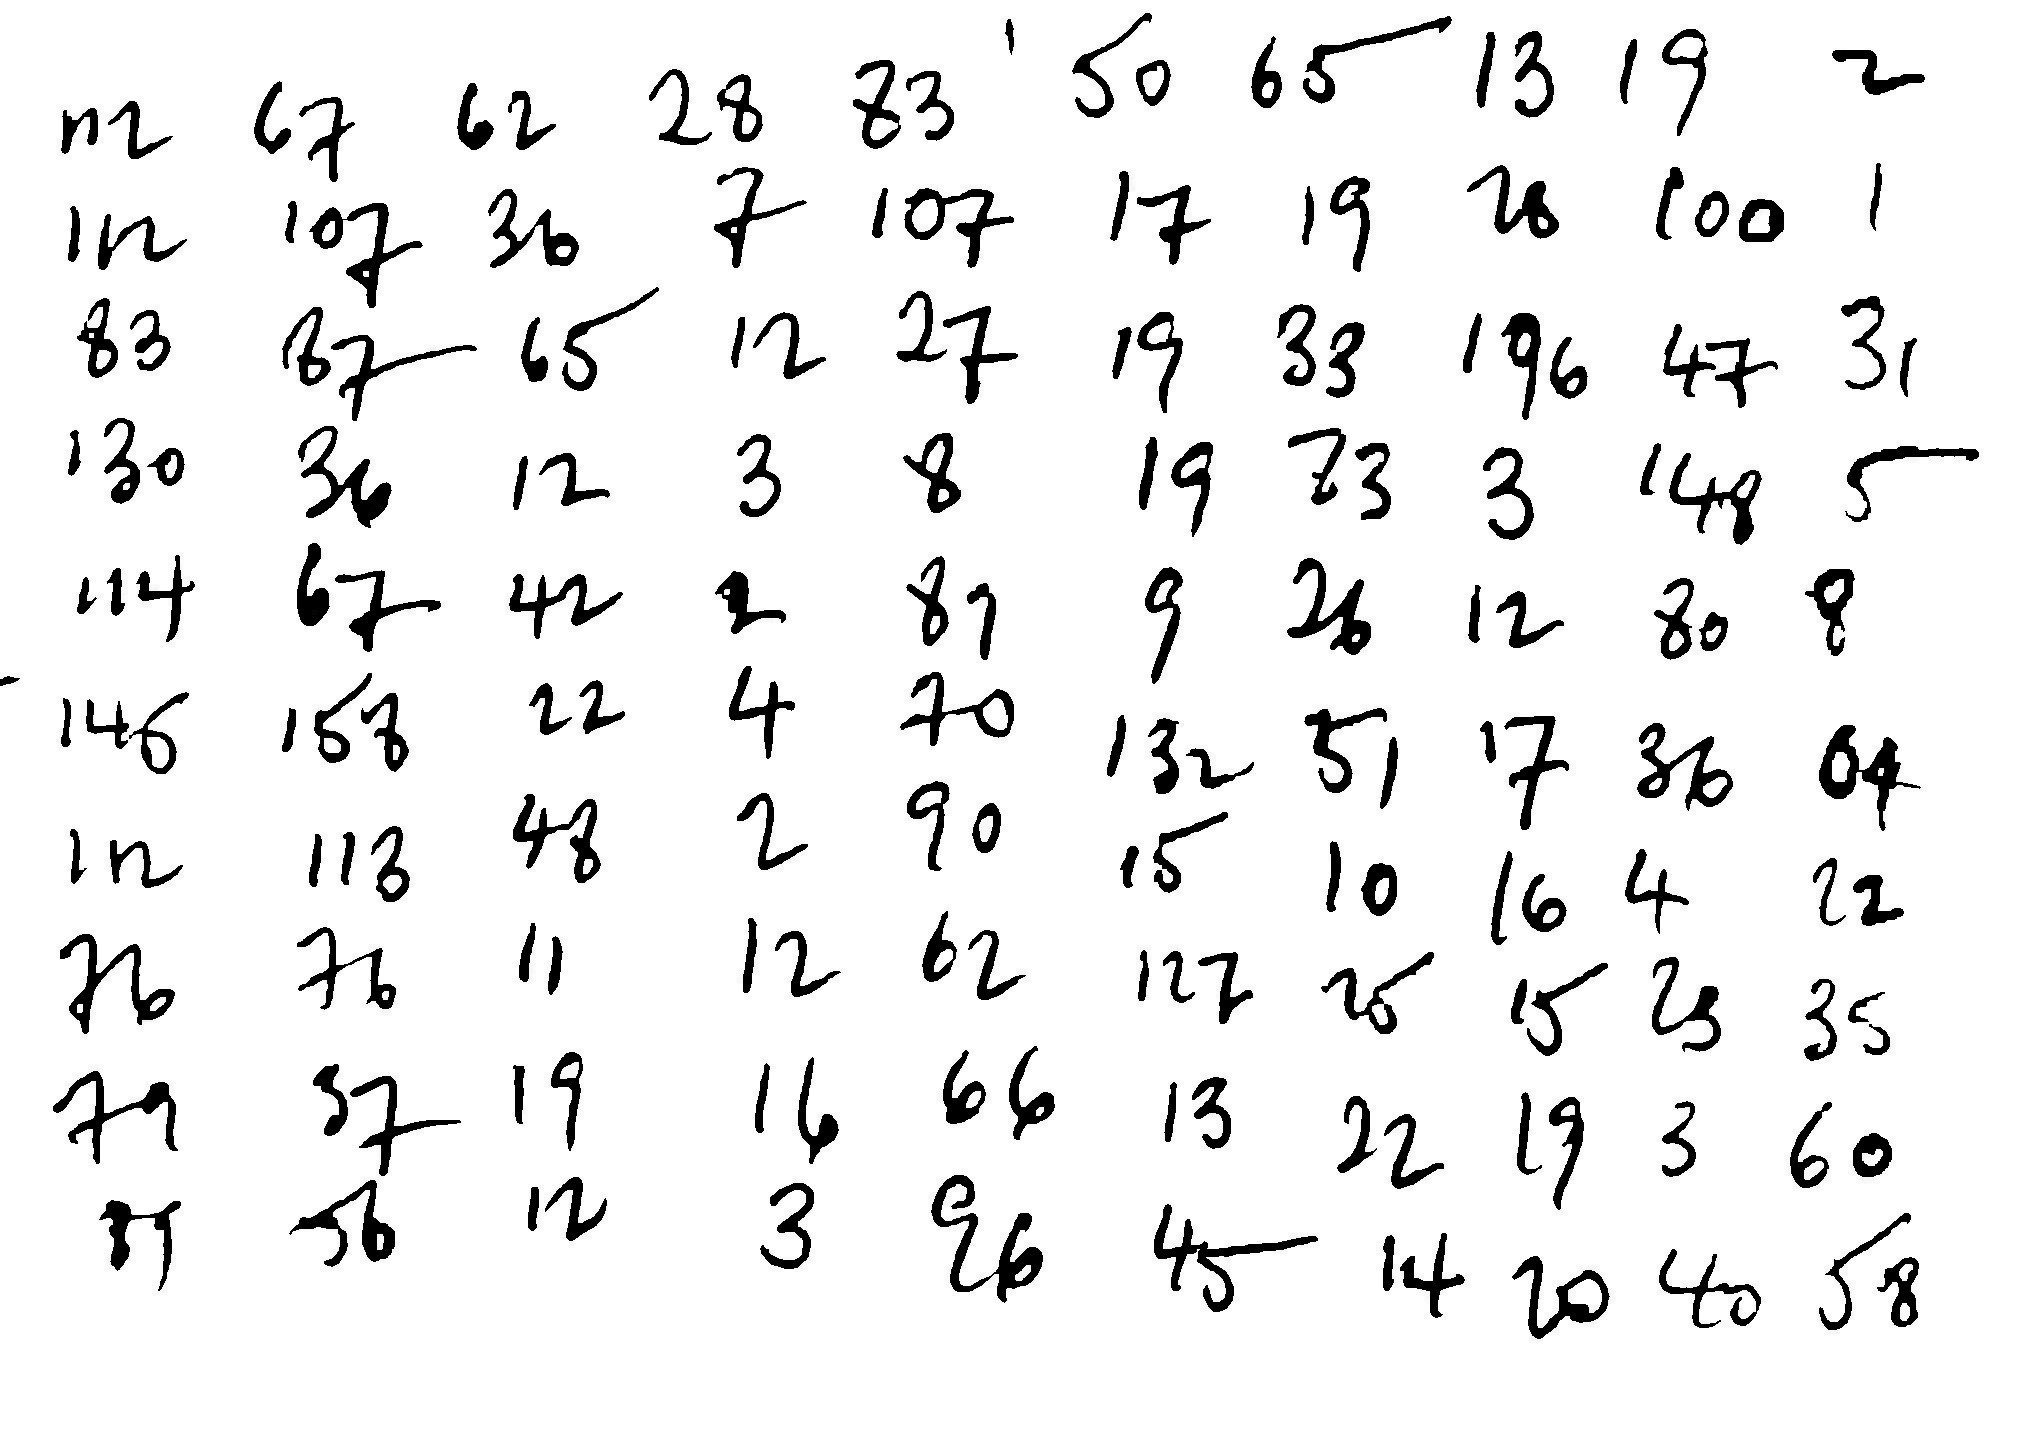 112 67 62 28 83 50 65 13 19 2
112 107 36 7 107 17 19 28 100 1
83 87 65 12 27 19 33 196 47 31
130 36 12 3 8 19 73 3 148 5
114 67 42 2 87 9 26 12 80 8
145 158 22 4 70 132 51 17 36 64
112 113 48 2 90 15 10 16 4 22
76 76 11 12 62 127 25 15 23 35
79 37 19 16 66 13 22 19 3 60
56 12 3 96 45 14 20 40 58